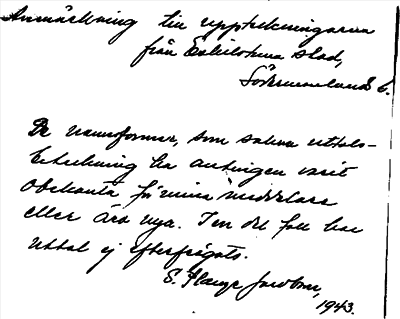 Anmärkning till uppteckningarna
från Eskilstuna stad,
Södermanlands l.
De namnformer, som sakna uttals-
beteckning ha antingen varit
obekanta för mina meddelare
eller äro nya. I en del fall har
uttal ej efterfrågats.
E. Hauge Jacobson,
1943.